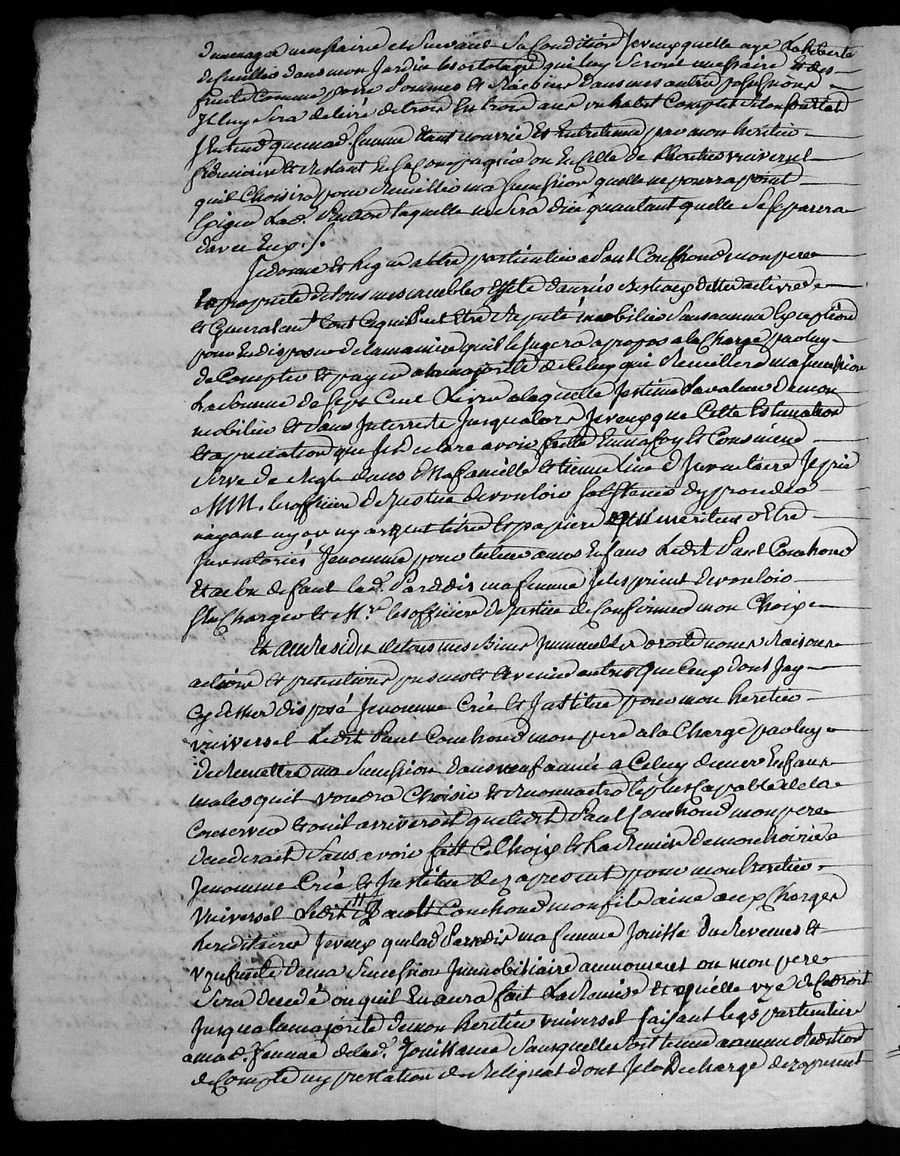 de menage necessaire et suivant sa Condition Je veux quelle aye La liberte
de cuillir dans mon Jardin les ortolage qui luy seront necessaire et des
fruits comme poire Pommes et Raisins dans mes autres possessions
Il luy sera delivré de trois en trois ans un habit Complet
J'entend que mad. femme étant nourrie et Entretenue par mon heritier
fiduciaire et restant en sa Compagnie ou en celle de l'heritier universel
quil Choisira pour Recuillir ma succession quelle ne pourra point
Exiger Lad. Pention laquelle ne sera düe quautant quelle se separera
d'avec Eux ./.
Je donne et legue a titre particulier a Paul Couchoud mon pere
la propriete de tous mes meubles Effets danrées Bestiaux dettes actives
et Generalemt. tout ce qui Peut Etre Reputé mobilier sans aucune Exception
pour En disposer de la maniere quil le Jugera a propos a la Charge par luy
de Compter et payer a la majorité de Celuy qui Recuillera ma succession
La somme de sept Cent Livres a laquelle J'estime La valeur de mon
mobilier et sans Interrets Jusqualors Je veux que Cette Estimation
et apreciation que Je declare avoir faitte En ma foy et Consience
serve de Regle dans Ma famille et tienne lieu d'Inventaire Je prie
MM. les officiers de Justice de vouloir s'abstenir dy proceder
nayant ny or ny argent titres et papiers qui meritent d'Etre
Inventoriés Je nomme pour tuteur a mes Enfans Ledit Paul Couchoud
Et a son defaut lad. Paradis ma femme Je les prient de vouloir
s'En Charger et Mrs. les officiers de Justice de Confirmer mon Choix
Et au Residu de tous mes Biens Immeubles droits noms Raisons
actions et pretentions presents et avenir autres que Ceux dont J'ay
Cy dessus disposé Je nomme Crée et Institue pour mon heritier
universel Ledit Paul Couchoud mon pere a la Charge par luy
de Remettre ma succession dans neuf année a Celuy de mes Enfans
males quil voudra Choisir et Reconnaitra le plus Capable de la
Conserver et ou il arriveroit que ledit Paul Couchoud mon pere
decederait sans avoir fait Ce Choix et La Remise de mon hoirie
Je nomme Crée et Institue des a present pour mon heritier
universel Ledit Couchoud mon fils ainé aux Charges
hereditaires Je veux que lad Paradis ma femme Jouisse des Revenus et
usufruits de ma succession Immobiliaire au moment ou mon pere
sera decedé ou quil En aura fait La Remise et quelle use de Ce droit
Jusqua la majorité de mon heritier universel faisant legs particulier
a mad. femme de lad. Jouissance sans quelle soit tenue a aucune Reddition
de Compte ny prestation de Reliquat dont Je la Decharge des a present